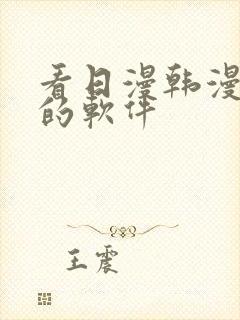 看日漫韩漫
的軟件
王震